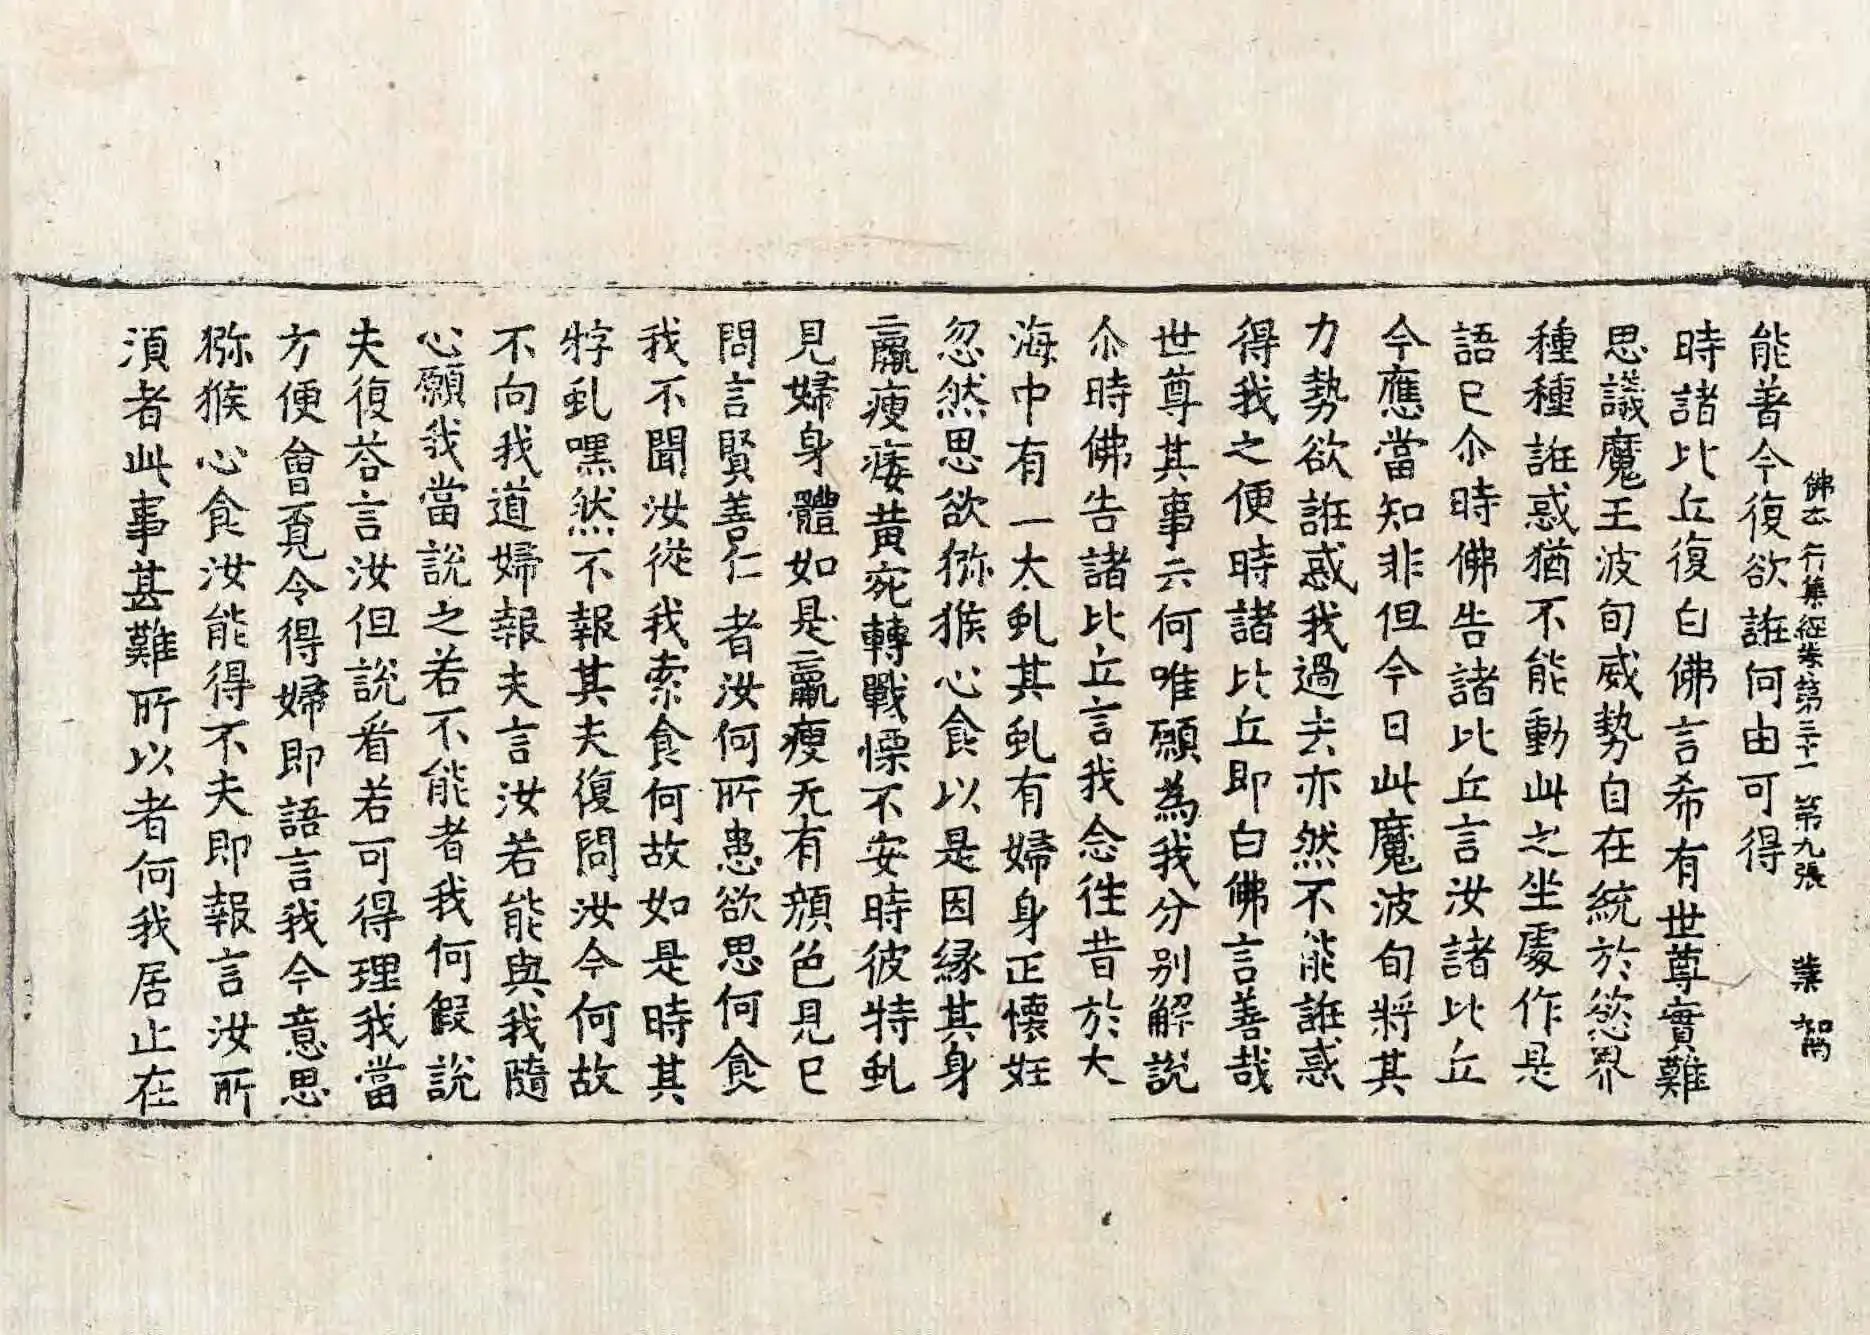 佛本行集經卷第三十一 第九張 業 
能普今復欲誑何由可得
時諸比丘復白佛言希有世尊實難
思議魔王波旬威勢自在統於慾界
種種誑惑猶不能動此之坐處作是
語已尒時佛告諸比丘言汝諸比丘
今應當知非但今日此魔波旬將其
力勢欲誑惑我過去亦然不能誑惑
得我之便時諸比丘即白佛言善哉
世尊其事云何唯願為我分別解說
尒時佛告諸比丘言我念往昔於大
海中有一大虬其虬有婦身正懷妊
忽然思欲獼猴心食以是因緣其身
羸瘦痿黃宛轉戰慄不安時彼特虬
見婦身體如是羸瘦无有顏色見已
問言賢善仁者汝何所患欲思何食
我不聞汝從我索食何故如是時其
牸虬嘿然不報其夫復問汝今何故
不向我道婦報夫言汝若能與我隨
心願我當說之若不能者我何假說
夫復荅言汝但說看若可得理我當
方便會覔令得婦即語言我今意思
獼猴心食汝能得不夫即報言汝所
湏者此事甚難所以者何我居止在